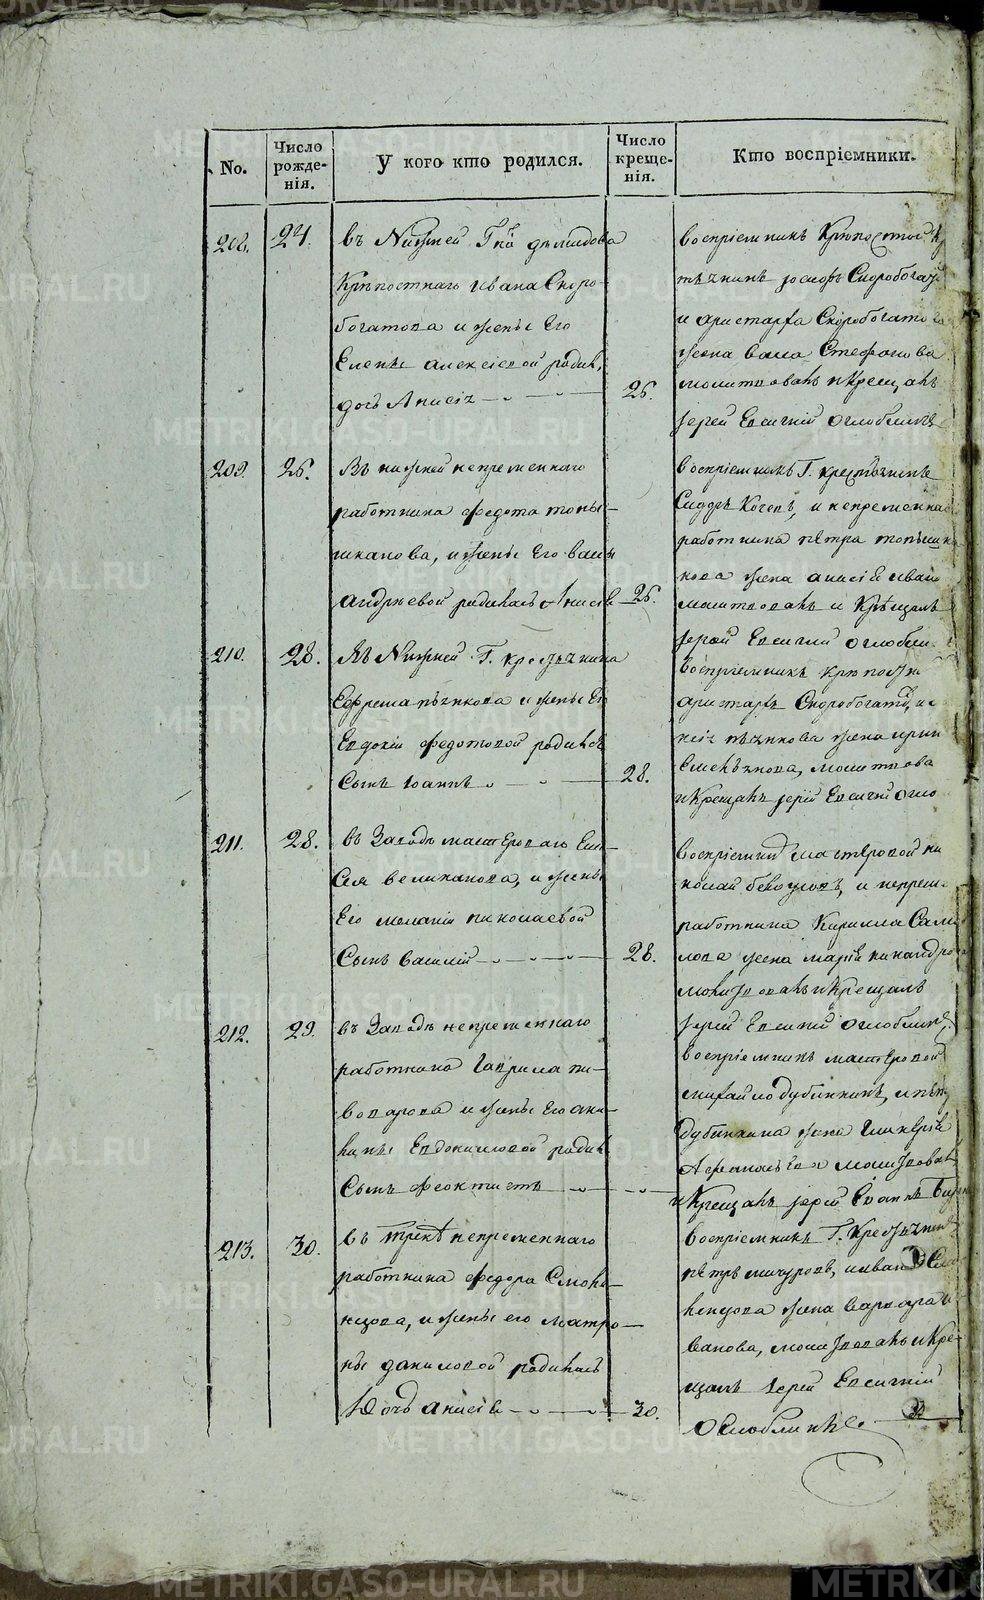 No.
Число рожденія.
У кого кто родился.
Число крещенія.
Кто воспріемники.
208. 24.
въ Нижней Гна демидова
Крѣпостнаго Ивана Скоро-
богатова и жены Его
Елены алексіевой родил.
дочь Анисія
26.
воспріемникъ Крѣпостной
Скоробога
и аристарха Скоробогатова
жена васа Стефанова
молитвовалъ и Крещалъ
Іерей Евсигній Оглоблинъ
209. 26.
Въ нижней непременнаго
работника федота топы-
шканова, и жены Его васы
андрѣевой родилась Анисія
26.
воспріемникъ Г. крестьянинъ
Сидоръ Кочевъ, и непременнаго
работника петра топышка
нова жена анисія иван
молитвовалъ и Крещалъ
Іерей Евсигній Оглоблин
210. 28.
Въ Нижней Г. крестьянина
Ефрема пьянкова и жены Ег
Евдокіи федотовой родился
Сынъ Іоаннъ
28.
воспріемникъ крѣпостн
аристархъ Скоробогатов,
пьянкова жена ирин
молитвова
и Крещалъ Іерей Евсигній Огло
211. 28.
въ Заводѣ мастероваго Ели-
сея великанова, и жены
Его меланіи николаевой
Сынъ василій
28.
воспріемник мастеровой ни
колай белоусовъ, и непрем.
работника Кирилла Само
лова жена марія никандро
молитвовалъ и Крещалъ
Іерей Евсигній Оглоблинъ
212. 29.
въ Заводѣ непременнаго
работника Гаврила пи-
воварова и жены Его аки-
лины Евдокимовой родил
Сынъ феоктистъ
воспріемникъ мастеровой
михайло дубинкинъ, и петр
дубинкина жена Гликерія
молитвовал
и Крещалъ Іерей Іоаннъ
213. 30.
въ трекѣ непременнаго
работника федора Смоле-
нцова, и жены его матро-
ны даниловой родилась
дочь анисія
30.
воспріемникъ Г. Крестьянинъ
петръ мичуровъ, и ивана Смо
ленцова жена варвара И
ванова, молитвовалъ и Кре-
щалъ Іерей Евсигній
Оглоблинъ.
METRIKI.GASO-URAL.RU